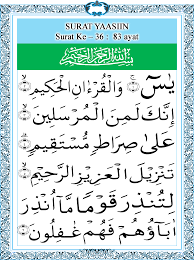 SURAT YAASIIN
Surat Ke – 36 : 83 ayat
بِسْمِ اللّٰهِ الرَّحْمٰنِ الرَّحِيْمِ
يٰسۤ ۝ وَالْقُرْءَانِ الْحَكِيْمِ ۝
إِنَّكَ لَمِنَ الْمُرْسَلِيْنَ ۝
عَلَىٰ صِرَاطٍ مُّسْتَقِيْمٍ ۝
تَنْزِيْلَ الْعَزِيْزِ الرَّحِيْمِ ۝
لِتُنْذِرَ قَوْمًا مَّآ أُنْذِرَ
اٰبَآؤُهُمْ فَهُمْ غٰفِلُوْنَ ۝